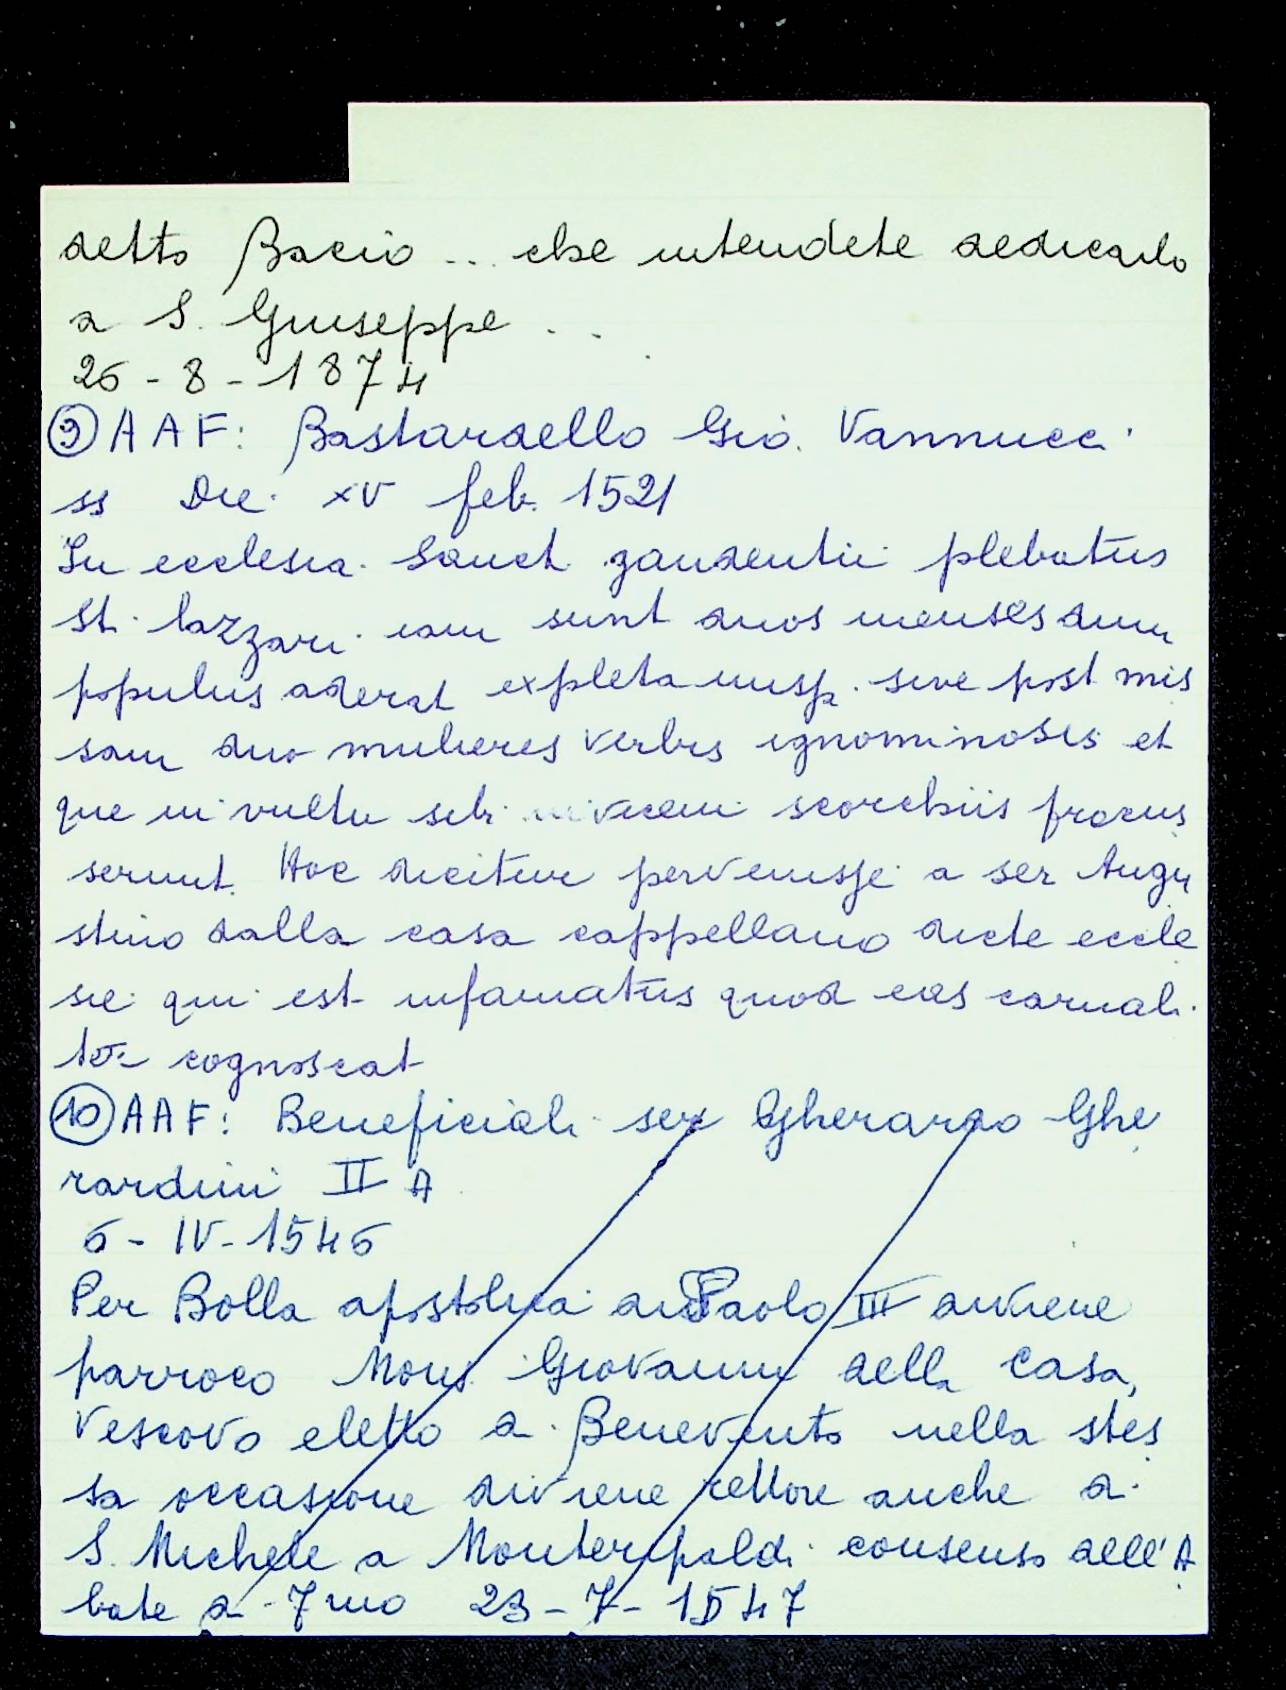 detto Bacio ... che intendete dedicarlo
a S. Giuseppe ...
26 - 8 - 1874
⑨ AAF: Bastardello Giò. Vannucci
ss Die. XV feb. 1521
In ecclesia. Sanct. gaudentii plebatus
St. Lazzari. iam sunt duos menses dum
populus aderat expleta missa. sive post mis
sam duo mulieres verbis ignominosis et
que in vultu sibi invicem scorchiis
serunt. Hoc dicitur pervenisse a ser Augu
stino dalla casa cappellano dicte eccle
sie qui est infamatus quod eas carnali.
ter cognoscat
⑩ AAF: Beneficiali ser Gherardo Ghe
rardini II A
6 - IV - 1546
Per Bolla apostolica di Paolo III diviene
parroco Mons. Giovanni della Casa,
Vescovo eletto a Benevento nella stes
sa occasione diviene rettore anche a
S. Michele a Monteripaldi consenso dell'A
bate a 7mo 23 - 7 - 1547